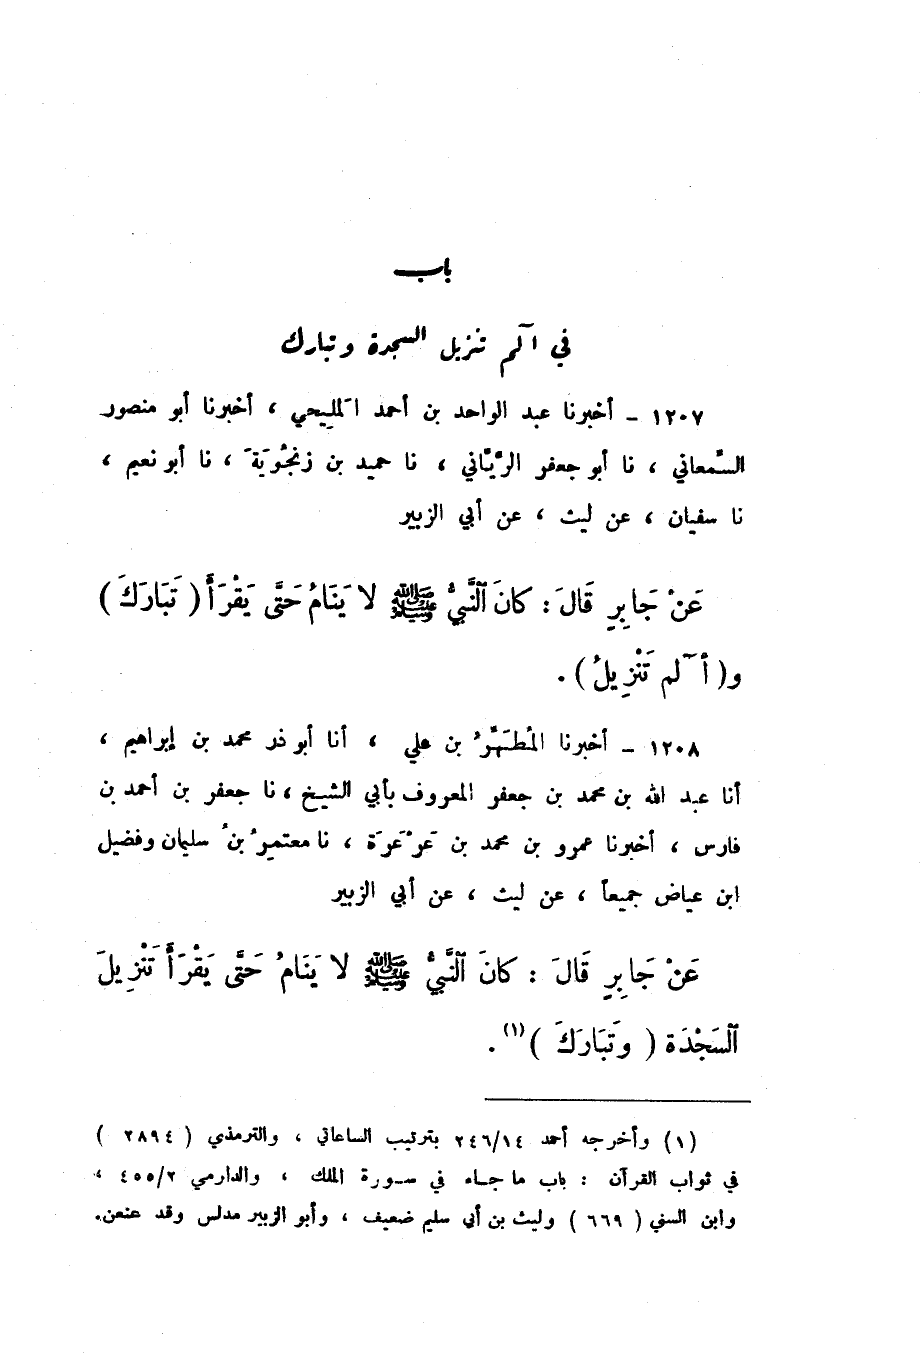 باب
في الٓم تنزيل السجدة وتبارك
١٢٠٧ – أخبرنا عبد الواحد بن أحمد المَلِيحي ، أخبرنا أبو منصور
السَّمعاني ، نا أبو جعفر الرَّيَّاني ، نا حميد بن زنجُويَةَ ، نا أبو نعيم ،
نا سفيان ، عن ليث ، عن أبي الزبير
عَنْ جَابِرٍ قَالَ : كَانَ ٱلنَّبِيُّ ﷺ لَا يَنَامُ حَتَّى يَقْرَأَ ( تَبَارَكَ )
و( أٓلم تَنْزِيلُ ) .
١٢٠٨ – أخبرنا المُطَهَّرُ بن علي ، أنا أبو ذر محمد بن إبراهيم ،
أنا عبد الله بن محمد بن جعفر المعروف بأبي الشيخ ، نا جعفر بن أحمد بن
فارس ، أخبرنا عمرو بن محمد بن عَرْعَرَة ، نا معتمرُ بنُ سليمان وفضيل
ابن عياض جميعاً ، عن ليث ، عن أبي الزبير
عَنْ جَابِرٍ قَالَ : كَانَ ٱلنَّبِيُّ ﷺ لَا يَنَامُ حَتَّى يَقْرَأَ تَنْزِيلَ
ٱلسَّجْدَة ( وَتَبَارَكَ )(١) .
(١) وأخرجه أحمد ٢٤٦/١٤ بترتيب الساعاتي ، والترمذي ( ٢٨٩٤ )
في ثواب القرآن : باب ما جاء في سورة الملك ، والدارمي ٤٥٥/٢ ،
وابن السني ( ٦٦٩ ) وليث بن أبي سليم ضعيف ، وأبو الزبير مدلس وقد عنعن.